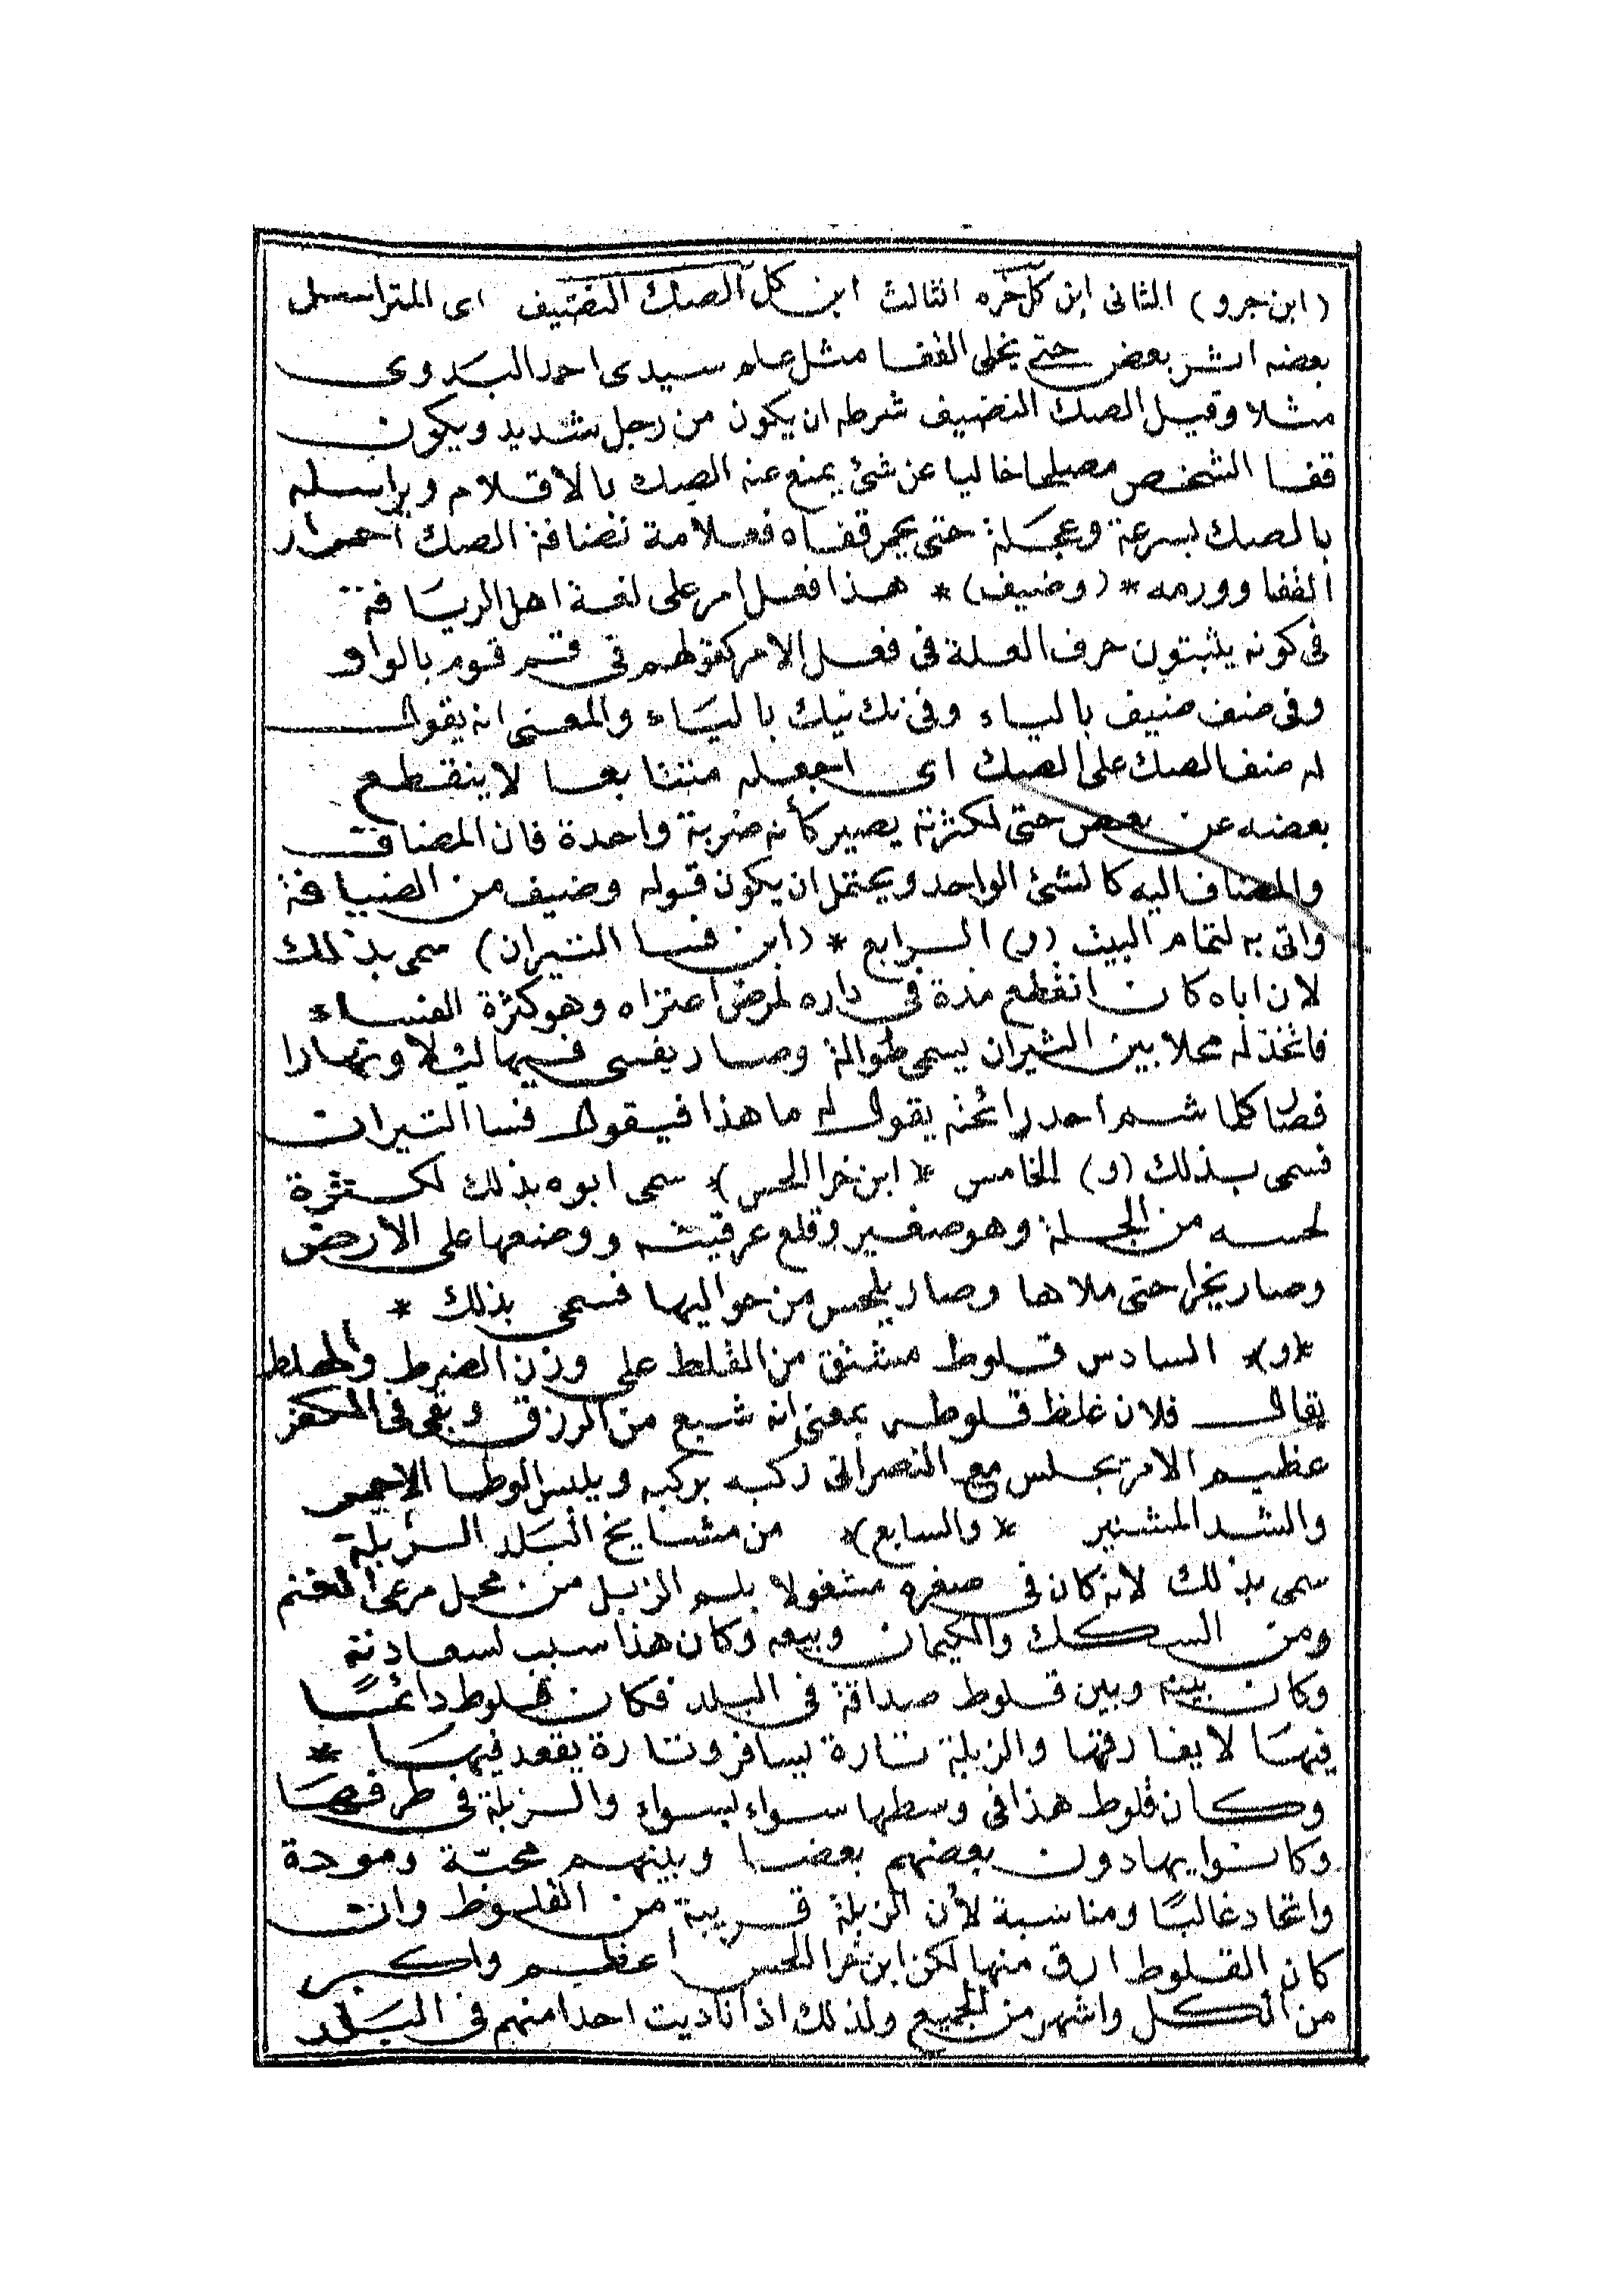 (ابن جرو) الثانى ابن كل خره الثالث ابن كل الصك النضيف اى المتراسل
بعضه اثر بعض حتى يخلى القفا مثل علم سيدى احمد البدوى
مثلا وقيل الصك النضيف شرطه ان يكون من رجل شديد ويكون
قفا الشخص خاليا عن شئ يمنع عنه الصك بالاقلام ويراسله
بالصك بسرعة وعجلة حتى يحمر قفاه فعلامة نضافة الصك احمرار
القفا وورمه * (وضيف) * هذا فعل امر على لغة اهل الريافة
فى كونه يثبتون حرف العلة فى فعل الامر كقولهم فى قم قوم بالواو
وفى ضف ضيف بالياء وفى نك نيك بالياء والمعنى انه يقول
له ضف الصك على الصك اى اجعله متتابعا لا ينقطع
بعضه عن بعض حتى لكثرته يصير كأنه ضربة واحدة فان المضاف
والمضاف اليه كالشئ الواحد ويحتمل ان يكون قوله وضيف من الضيافة
واتى به لتمام البيت (و) الرابع * (ابن فسا التيران) سمى بذلك
لان اباه كان انقطع مدة فى داره لمرض اعتراه وهو كثرة الفساء
فاتخذ له محلا بين الثيران يسمى طوالة وصار يفسى فيها ليلا ونهارا
فصار كلما شم احد رائحته يقول له ما هذا فيقول فسا التيران
فسمى بذلك (و) الخامس * (ابن خرا اللحس) * سمى ابوه بذلك لكثرة
لحسه من الجلة وهو صغير وقلع عرقيته ووضعها على الارض
وصار يخرا حتى ملاها وصار يلحس من حواليها فسمى بذلك *
*(و)* السادس قلوط مشتق من القلط على وزن الضرط والملط
يقال فلان غلظ قلوطه بمعنى انه شبع من الرزق وبقى فى الكفر
عظيم الامر يجلس مع النصرانى ركبه بركبه ويلبس الوطا الاحمر
والشد المشنير *(والسابع)* من مشايخ البلد الزبلة
سمى بذلك لانه كان فى صغره مشغولا بلم الزبل من محل مرعى الغنم
ومن السكك والكيمان وبيعه وكان هذا سبب لسعادته
وكان بينه وبين قلوط صداقة فى البلد فكان قلوط دائما
فيها لا يفارقها والزبلة تارة يسافر وتارة يقعد فيها *
وكان قلوط هذا فى وسطها سواء بسواء والزبلة فى طرفها
وكانوا يهادون بعضهم بعضا وبينهم محبة ومودة
واتحاد غالبا ومناسبة لأن الزبلة قريبة من القلوط وان
كان القلوط ارق منها لكن ابن خرا اللحس اعظم واكبر
من الكل واشهر من الجميع ولذلك اذا ناديت احدا منهم فى البلد